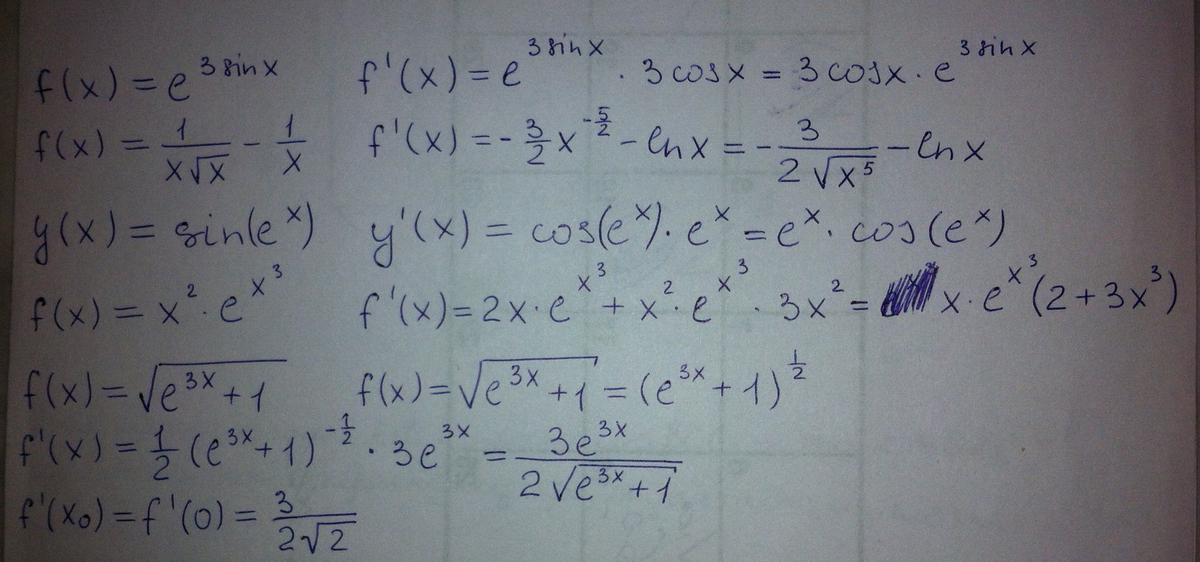 f(x) = e^{3 sin x}   f'(x) = e^{3 sin x} · 3 cos x = 3 cos x · e^{3 sin x}
f(x) = \frac{1}{x√x} - \frac{1}{x}   f'(x) = -\frac{3}{2}x^{-\frac{5}{2}} - ln x = -\frac{3}{2√{x^5}} - ln x
y(x) = sin(e^x)   y'(x) = cos(e^x) · e^x = e^x · cos(e^x)
f(x) = x^2 · e^{x^3}   f'(x) = 2x · e^{x^3} + x^2 · e^{x^3} · 3x^2 = x · e^{x^3}(2+3x^3)
f(x) = √{e^{3x}+1}   f(x) = √{e^{3x}+1} = (e^{3x}+1)^{\frac{1}{2}}
f'(x) = \frac{1}{2}(e^{3x}+1)^{-\frac{1}{2}} · 3e^{3x} = \frac{3e^{3x}}{2√{e^{3x}+1}}
f'(x_0) = f'(0) = \frac{3}{2√2}